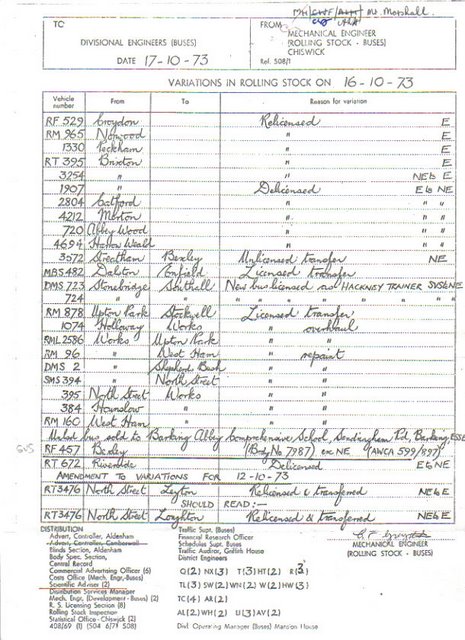 Mr. Marshall
TO
DIVISIONAL ENGINEERS (BUSES)
DATE 17-10-73
FROM
MECHANICAL ENGINEER
(ROLLING STOCK - BUSES)
CHISWICK
Ref. 508/1
VARIATIONS IN ROLLING STOCK ON 16-10-73
Vehicle number From To Reason for variation
RF 529 Croydon Relicensed E
RM 965 Norwood " E
1330 Peckham " E
RT 395 Brixton " E
3254 " " NEb E
1907 " Delicensed Eb NE
2804 Catford " " "
4212 Merton " " "
720 Abbey Wood " " "
4694 Harrow Weald " " "
3572 Streatham Bexley Unlicensed transfer NE
MBS 482 Dalston Enfield Licensed transfer
DMS 723 Stonebridge Southall New bus licensed as HACKNEY TRAINER SVS NE
724 " " " " " " " " "
RM 878 Upton Park Stockwell Licensed transfer
1074 Holloway Works " overhaul
RML 2586 Works Upton Park " "
RM 96 " West Ham " repaint
DMS 2 " Shepherds Bush " "
SMS 394 " North Street " "
395 North Street Works " "
384 Hounslow " " "
RM 160 West Ham " " "
bus sold to Barking Abbey Comprehensive School, Sandringham Rd, Barking, ESSEX
SVS RF 457 Bexley (Body No 7987) ex NE (AWCA 599/897)
RT 672 Riverside Delicensed Eb NE
AMENDMENT TO VARIATIONS FOR 12-10-73
RT3476 North Street Leyton Relicensed & transferred NEb E
SHOULD READ :-
RT3476 North Street Loughton Relicensed & transferred NEb E
DISTRIBUTION
Advert, Controller, Aldenham
Advert, Controller, Camberwell
Blinds Section, Aldenham
Body Spec. Section,
Central Record
Commercial Advertising Officer (6)
Costs Office (Mech. Engr.-Buses)
Scientific Adviser (2)
Distribution Services Manager
Mech. Engr. (Development - Buses) (2)
R. S. Licensing Section (8)
Rolling Stock Inspection
Statistical Office - Chiswick (2)
408/69 (1) (504 6/71 508)
Traffic Supt. (Buses)
Financial Research Officer
Schedules Supt. Buses
Traffic Auditor, Griffith House
District Engineers
Q(2) NX(3) T(3) HT(2) R(3)
TL(3) SW(2) WN(2) W(2) HW(3)
TC(4) AR(2)
AL(2) WH(2) U(3) AV(2)
Divl. Operating Manager (Buses) Mansion House
MECHANICAL ENGINEER
(ROLLING STOCK - BUSES)